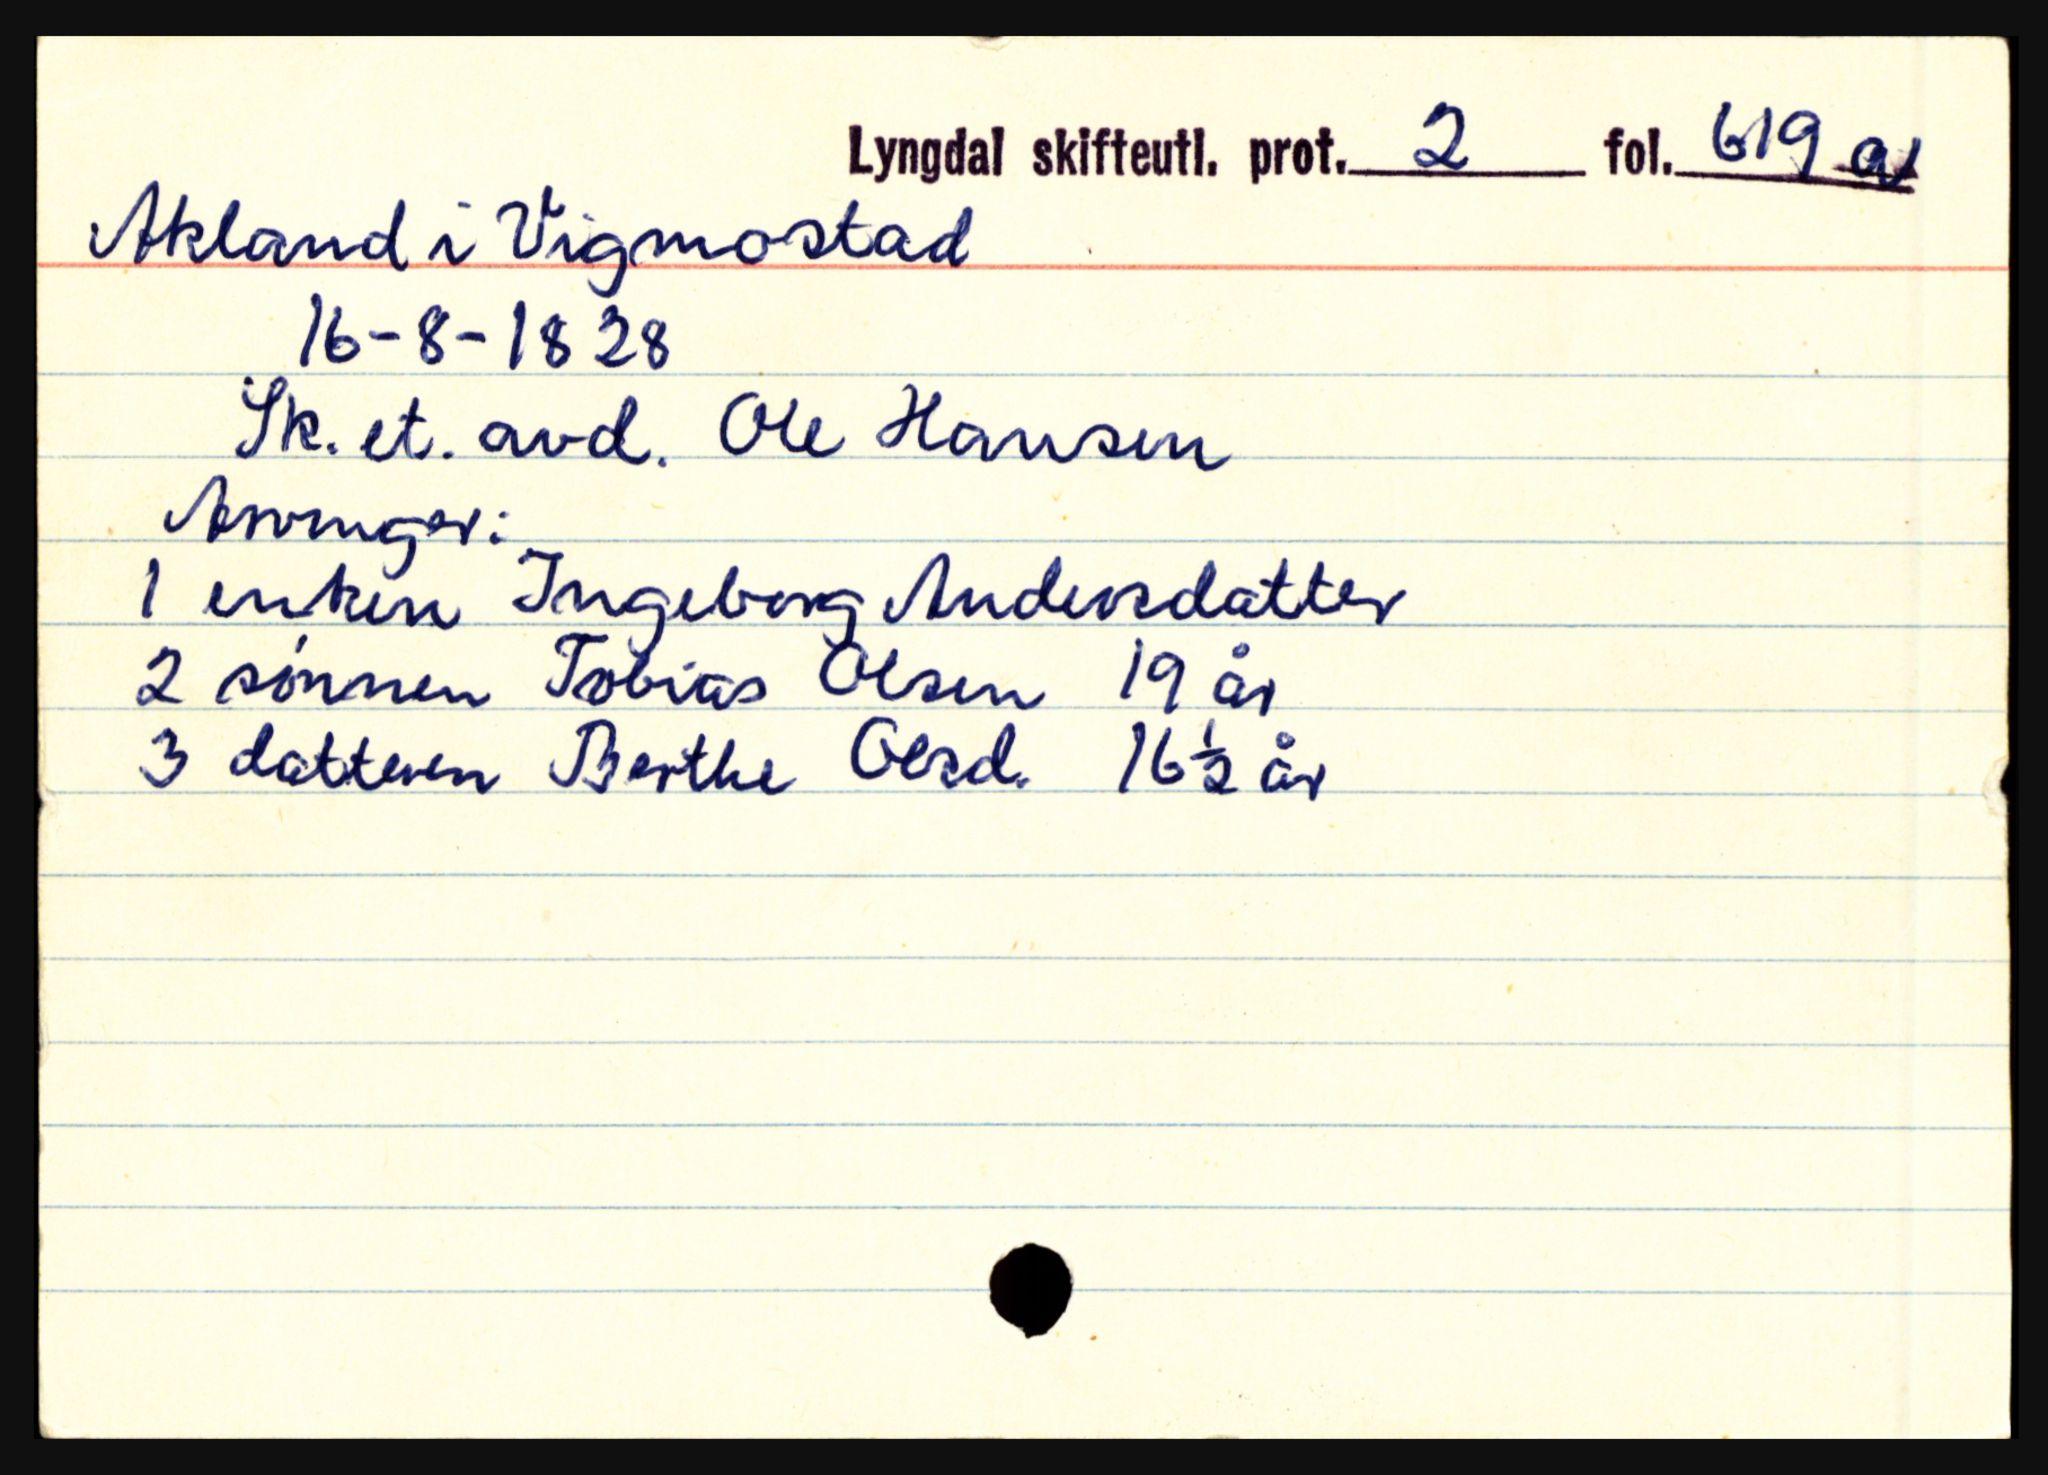 Lyngdal skifteutl. prot. 2 fol. 619 a
Akland i Vigmostad
16-8-1828
Sk. et. avd. Ole Hansen
Arvinger:
1 enken Ingeborg Andersdatter
2 sønnen Tobias Olsen 19 år
3 datteren Berthe Olsd. 16 1/2 år